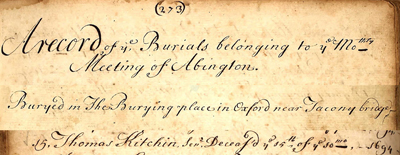 (273)
A record of yᵉ Burials belonging to yᵉ Mo=thly
Meeting of Abington.
Buryed in The Burying place in Oxford near Tacony bridge
15. Thomas Kitchin Senʳ Deceas'd yᵉ 15ᵗʰ of yᵉ 10ᵐᵒ 1694